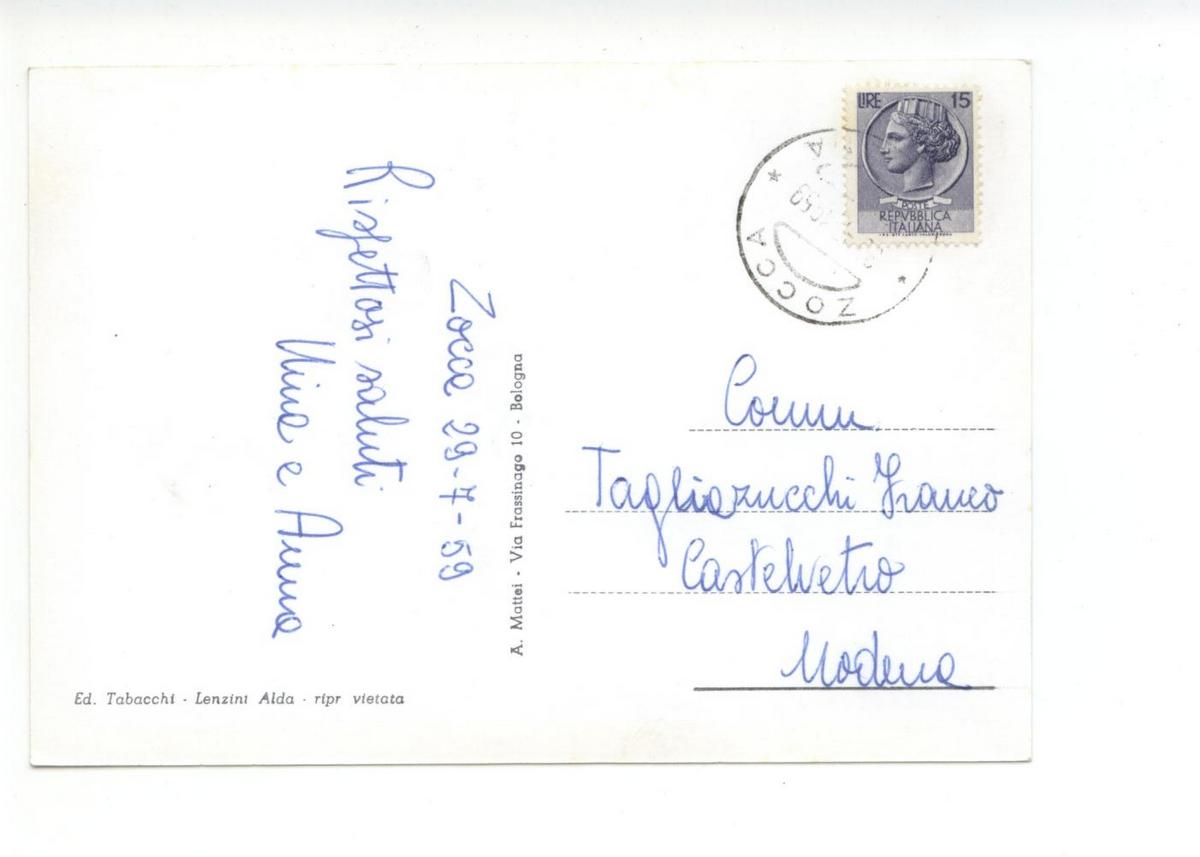 Zocca 29-7-59
Rispettosi saluti
Nina e Anna
Ed. Tabacchi - Lenzini Alda - ripr vietata
A. Mattei - Via Frassinago 10 - Bologna
LIRE 15
POSTE
REPVBBLICA
ITALIANA
ZOCCA
Comm.
Tagliazucchi Franco
Castelvetro
Modena